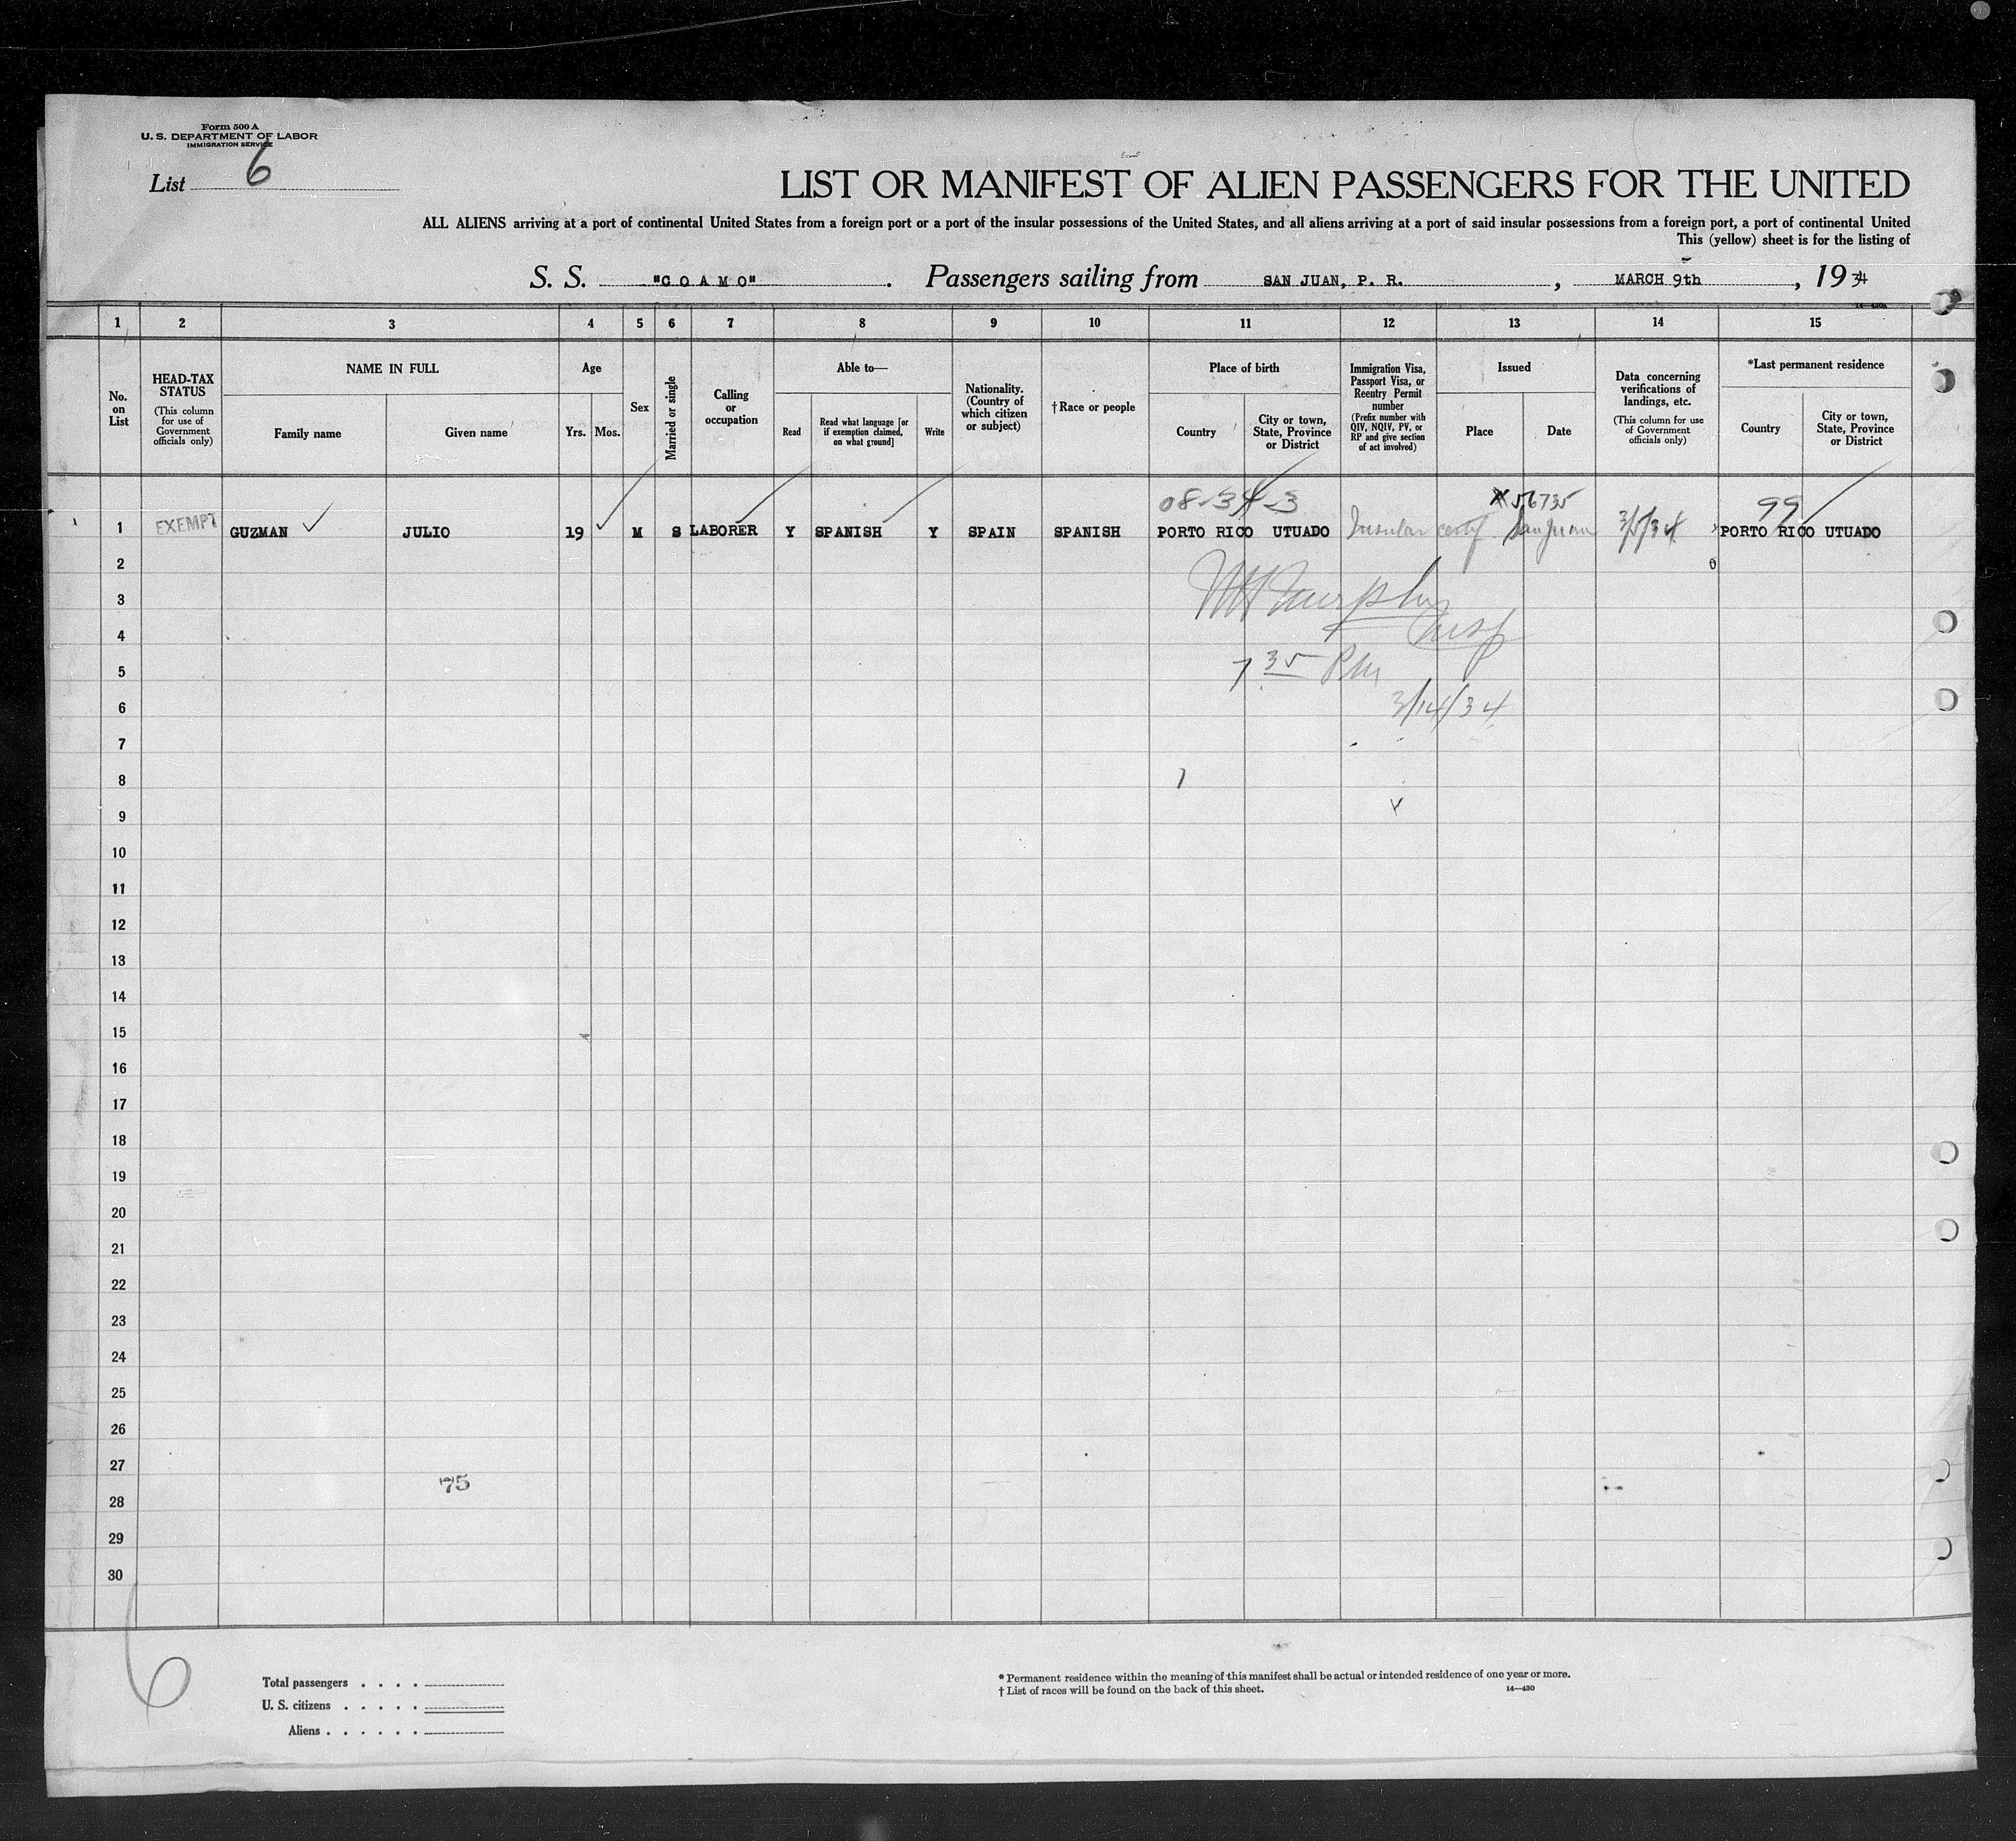 Form 500 A
U. S. DEPARTMENT OF LABOR
IMMIGRATION SERVICE
List 6
LIST OR MANIFEST OF ALIEN PASSENGERS FOR THE UNITED
ALL ALIENS arriving at a port of continental United States from a foreign port or a port of the insular possessions of the United States, and all aliens arriving at a port of said insular possessions from a foreign port, a port of continental United
This (yellow) sheet is for the listing of
S. S. "COAMO". Passengers sailing from SAN JUAN, P. R., MARCH 9th, 1934
1 2 3 4 5 6 7 8 9 10 11 12 13 14 15
No. on List
HEAD-TAX STATUS
(This column for use of Government officials only)
NAME IN FULL
Family name
Given name
Age
Yrs. Mos.
Sex
Married or single
Calling or occupation
Able to—
Read
Read what language [or if exemption claimed, on what ground]
Write
Nationality. (Country of which citizen or subject)
†Race or people
Place of birth
Country
City or town, State, Province or District
Immigration Visa, Passport Visa, or Reentry Permit number
(Prefix number with QIV, NQIV, PV, or RP and give section of act involved)
Issued
Place
Date
Data concerning verifications of landings, etc.
(This column for use of Government officials only)
*Last permanent residence
Country
City or town, State, Province or District
08-34-3 56735 99
1 EXEMPT GUZMAN JULIO 19 M S LABORER Y SPANISH Y SPAIN SPANISH PORTO RICO UTUADO Insular certf San Juan 3/5/34 PORTO RICO UTUADO
2
3 Murphy
4 Insp
5 7 35 PM
6 3/14/34
7
8
9
10
11
12
13
14
15
16
17
18
19
20
21
22
23
24
25
26
27
75
28
29
30
6
Total passengers . . . .
U. S. citizens . . . . .
Aliens . . . . . .
* Permanent residence within the meaning of this manifest shall be actual or intended residence of one year or more.
† List of races will be found on the back of this sheet. 14—430